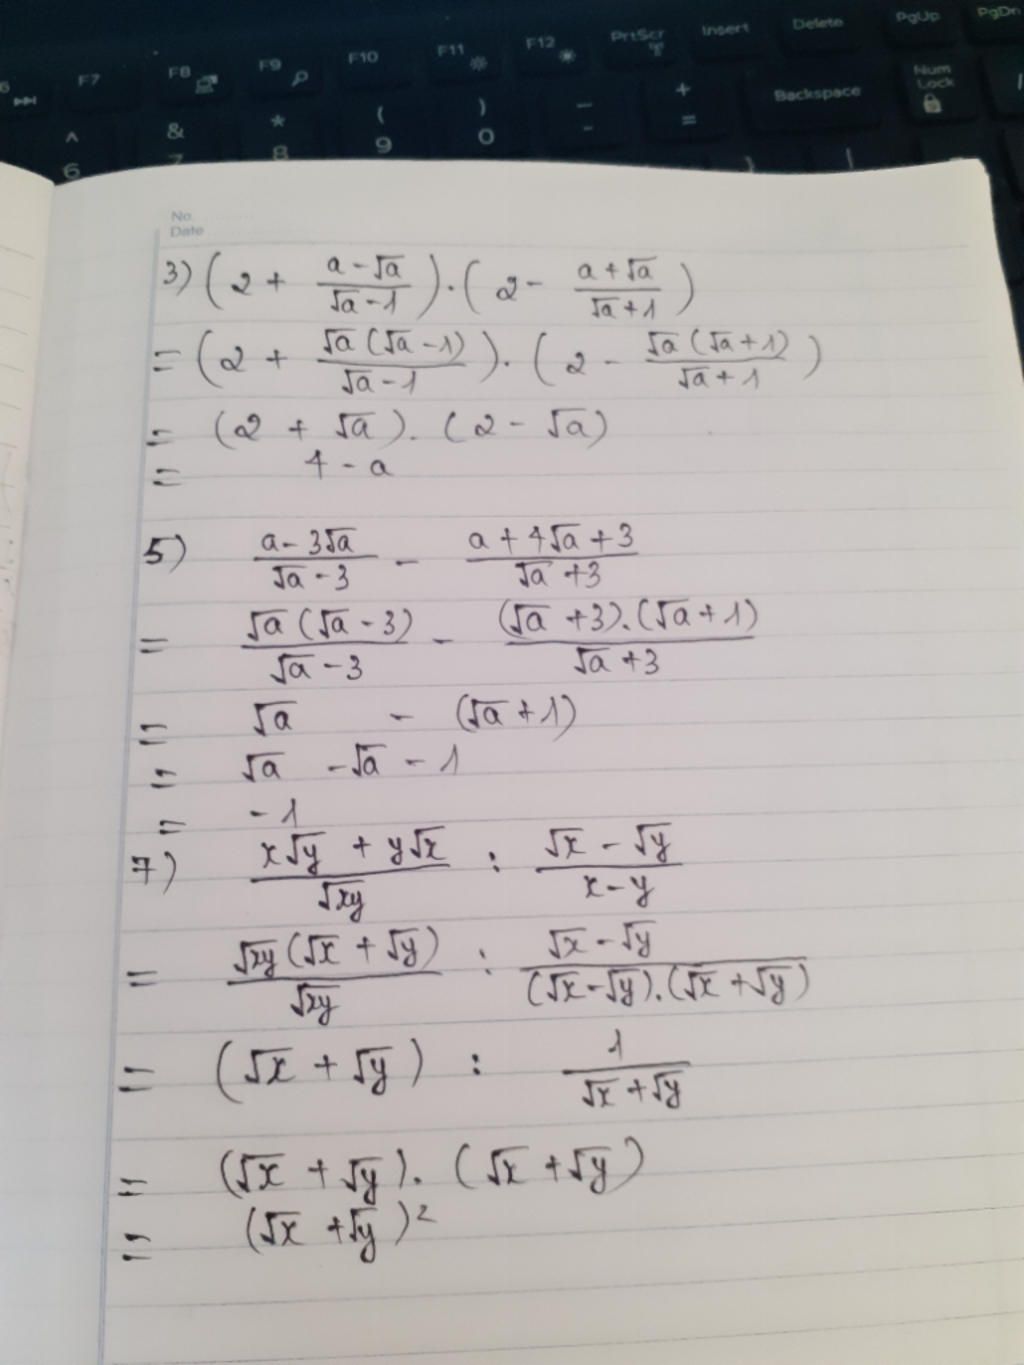 F7 F8 F9 F10 F11 F12 PrtScr Insert Delete PgUp PgDn
^ & * ( ) _ + Backspace Num Lock
6 7 8 9 0 - =
No.
Date
3) (2 + (a - √a)/(√a - 1)) . (2 - (a + √a)/(√a + 1))
= (2 + √a (√a - 1)/(√a - 1)) . (2 - √a (√a + 1)/(√a + 1))
= (2 + √a) . (2 - √a)
= 4 - a
5) (a - 3√a)/(√a - 3) - (a + 4√a + 3)/(√a + 3)
= √a (√a - 3)/(√a - 3) - (√a + 3) . (√a + 1)/(√a + 3)
= √a - (√a + 1)
= √a - √a - 1
= - 1
7) (x√y + y√x)/√xy : (√x - √y)/(x - y)
= √xy (√x + √y)/√xy : (√x - √y)/((√x - √y) . (√x + √y))
= (√x + √y) : 1/(√x + √y)
= (√x + √y) . (√x + √y)
= (√x + √y)²